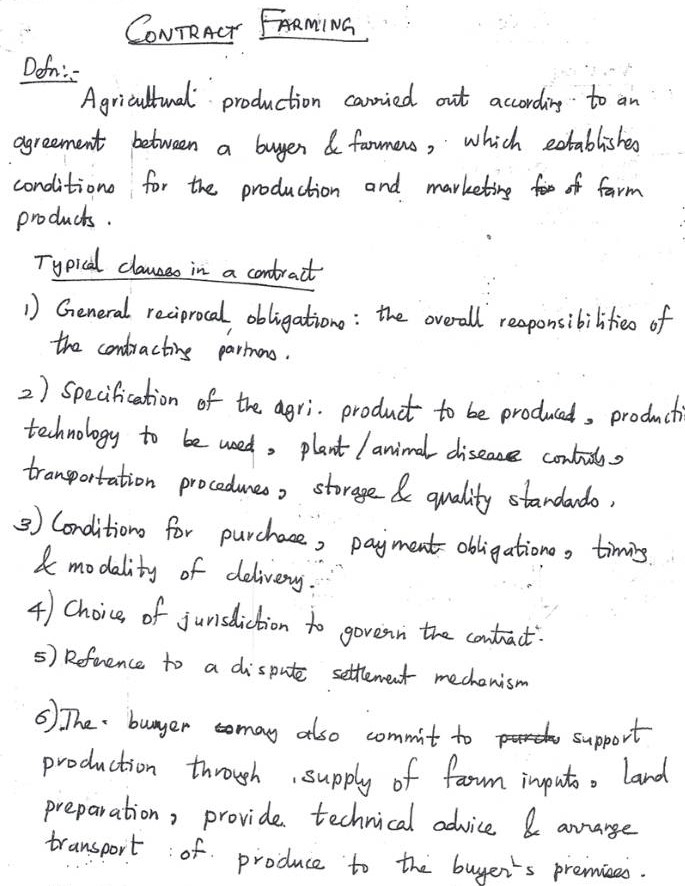 CONTRACT FARMING
Defn:-
Agricultural production carried out according to an
agreement between a buyer & farmers, which establishes
conditions for the production and marketing for of farm
products.
Typical clauses in a contract
1) General reciprocal obligations: the overall responsibilities of
the contracting partners.
2) Specification of the agri. product to be produced, producti
technology to be used, plant/animal disease controls,
transportation procedures, storage & quality standards,
3) Conditions for purchase, payment obligations, timing
& modality of delivery.
4) Choice of jurisdiction to govern the contract.
5) Reference to a dispute settlement mechanism
6) The buwyer may also commit to purch support
production through supply of farm inputs, land
preparation, provide technical advice & arrange
transport of produce to the buyer's premises.